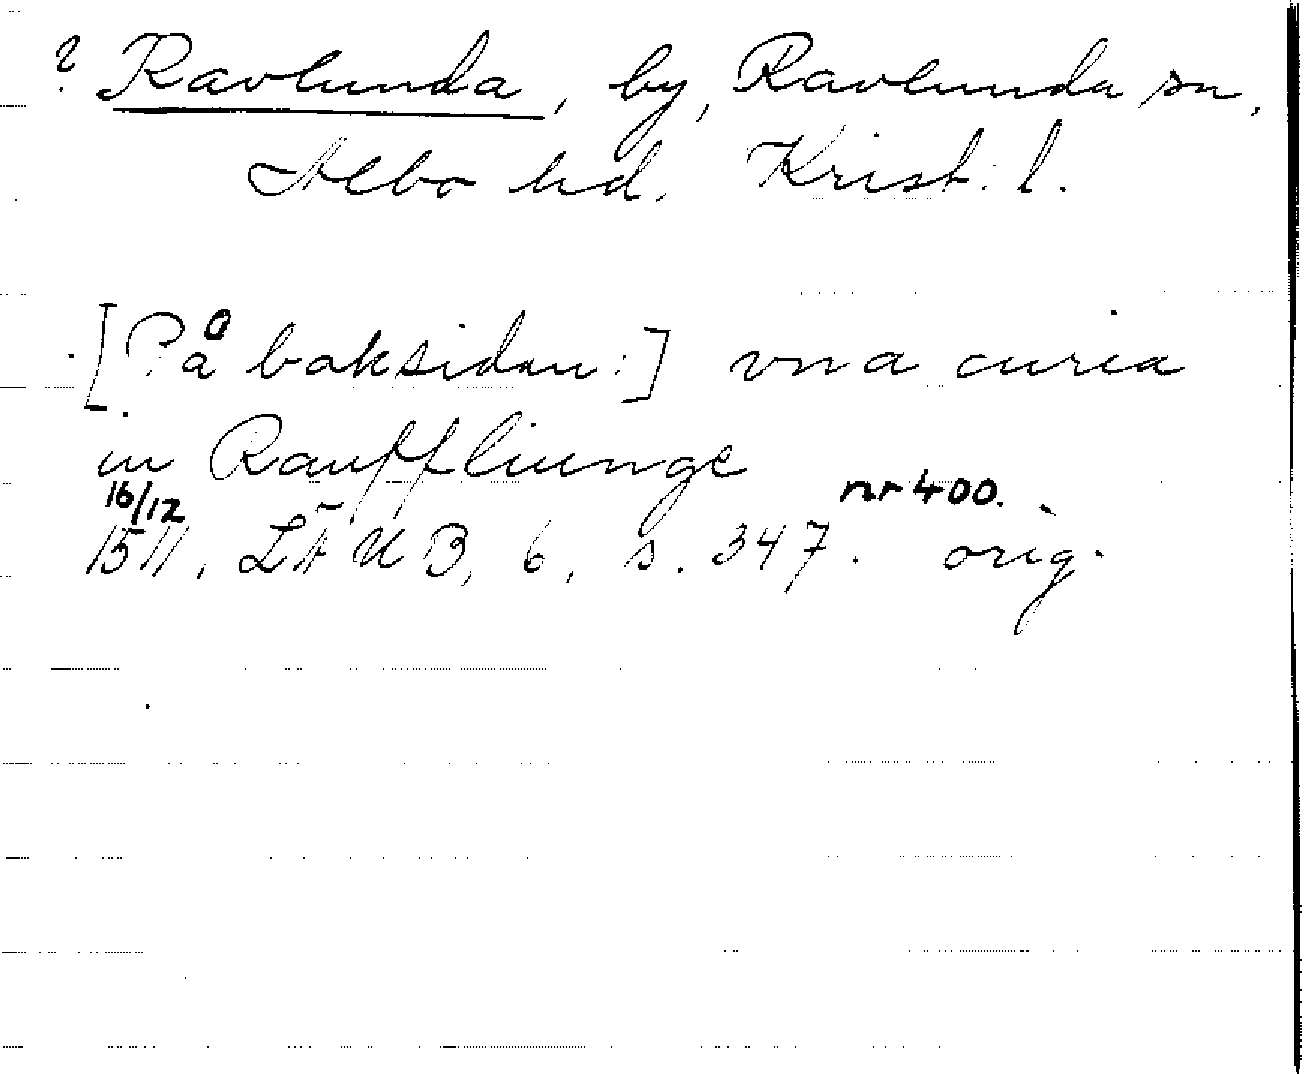 ? Ravlunda, by, Ravlunda sn,
Albo hd. Krist. l.
[På baksidan:] vna curia
in Rauffliunge
16/12 nr 400.
1511, LÄUB, 6, s. 347. orig.